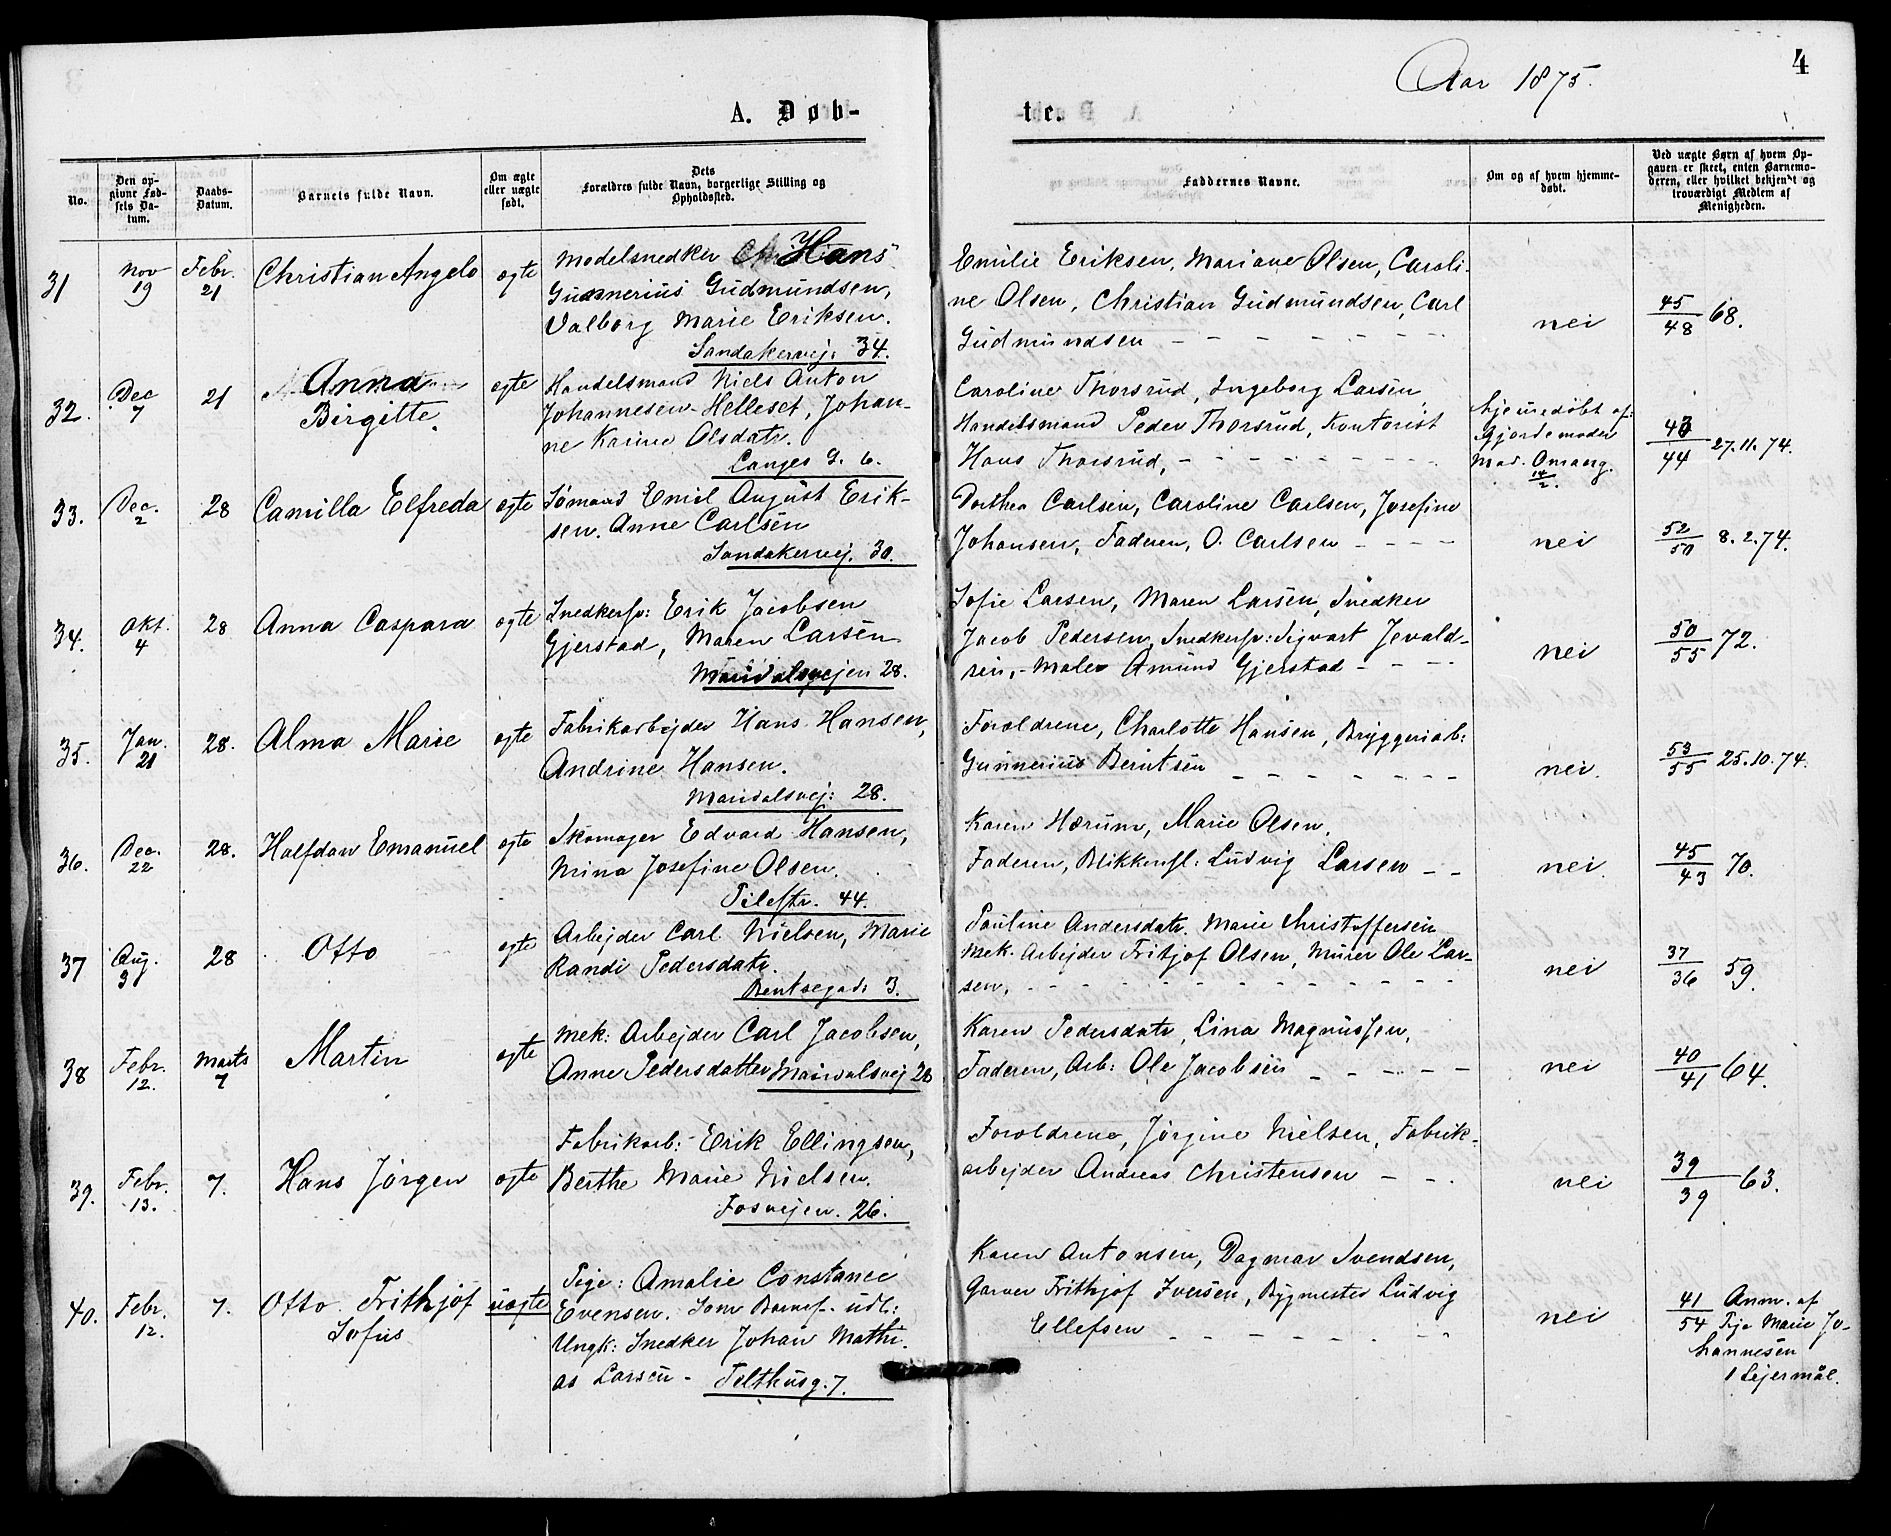 Aar 1875.
4
A. Døb-
te.
No.
Den op-
givne Fød-
sels Da-
tum.
Daabs-
Datum.
Barnets fulde Navn.
Om ægte
eller uægte
født.
Dets
Forældres fulde Navn, borgerlige Stilling og
Opholdssted.
Faddernes Navne.
Om og af hvem hjemme-
døbt.
Ved uægte Børn af hvem Op-
gaven er skeet, enten Barnemo-
deren, eller hvilket bekjendt og
troværdigt Medlem af
Menigheden.
31
Nov
19
Febr.
21
Christian Angelo
ægte
Modelsnedker Hans
Gunnerius Gudmundsen,
Valborg Marie Eriksen.
Sandakervej: 34.
Emilie Eriksen, Mariane Olsen, Caroli-
ne Olsen, Christian Gudmundsen, Carl
Gudmundsen
nei
45/48 68.
32.
Dec
7
21
Anna
Birgitte.
ægte
Handelsmand Niels Anton
Johannesen-Helleset, Johan-
ne Karine Olsdatr.
Langes G. 6.
Caroline Thorsrud, Ingeborg Larsen
Handelsmand Peder Thorsrud, Kontorist
Hans Thorsrud,
hjemedøbt af:
Gjordemoder
Mad. Omang.
14/2.
/44 27.11.74.
33.
Dec.
2
28
Camilla Elfreda
ægte
Sømand Emil August Erik-
sen. Anne Carlsen
Sandakervej. 30.
Dorthea Carlsen, Caroline Carlsen, Josefine
Johansen, Faderen, O. Carlsen
nei
52/50 8.2.74.
34.
Okt.
4
28
Anna Caspara
ægte
Snedkersv: Erik Jacobsen
Gjerstad, Maren Larsen
Maridalsvejen 28.
Sofie Larsen, Maren Larsen, Snedker
Jacob Pedersen, Snedkersv: Sigvart Jevald-
sen, - Maler Amund Gjerstad
nei
50/55 72.
35.
Jan.
21
28.
Alma Marie
ægte
Fabrikarbejder Hans Hansen,
Andrine Hansen.
Maridalsvej: 28.
Forældrene, Charlotte Hansen, Bryggeriarb:
Gunnerius Berntsen
nei.
53/55 25.10.74.
36.
Dec.
22
28.
Halfdan Emanuel
ægte
Skomager Edvard Hansen,
Mina Josefine Olsen.
Pilestr. 44.
Karen Hærum, Marie Olsen,
Faderen, Blikkensl: Ludvig Larsen
nei.
45/43 70.
37
Aug.
3
28
Otto
ægte
Arbejder Carl Nielsen, Marie
Randi Pedersdatr.
Bentsegad: 3.
Pauline Andersdatr. Marie Christoffersen
Mek. Arbejder Fritjof Olsen, Murer Ole Lar-
sen,
nei
37/36 59.
38
Febr.
12.
Marts
7
Martin
ægte
Mek: Arbejder Carl Jacobsen,
Anne Pedersdatter Maridalsvej 28
Karen Pedersdatr, Lina Magnussen,
Faderen, Arb: Ole Jacobsen
nei
40/41 64.
39.
Febr.
13.
7.
Hans Jørgen
ægte
Fabrikarb: Erik Ellingsen,
Berthe Marie Nielsen.
Fosvejen. 26.
Forældrene, Jørgine Nielsen, Fabrik-
arbejder Andreas Christensen
nei
39/39 63.
40.
Febr.
12.
7.
Otto Frithjof
Sofus
uægte
Pige: Amalie Constance
Evensen. Som Barnef. udl:
Ungk: Snedker Johan Mathi-
as Larsen - Telthusg. 7.
Karen Antonsen, Dagmar Svendsen,
Garver Frithjof Iversen, Bygmester Ludvig
Ellefsen
nei
41/54 Anm. af
Pige Marie Jo-
hannesen
1 Lejermål.